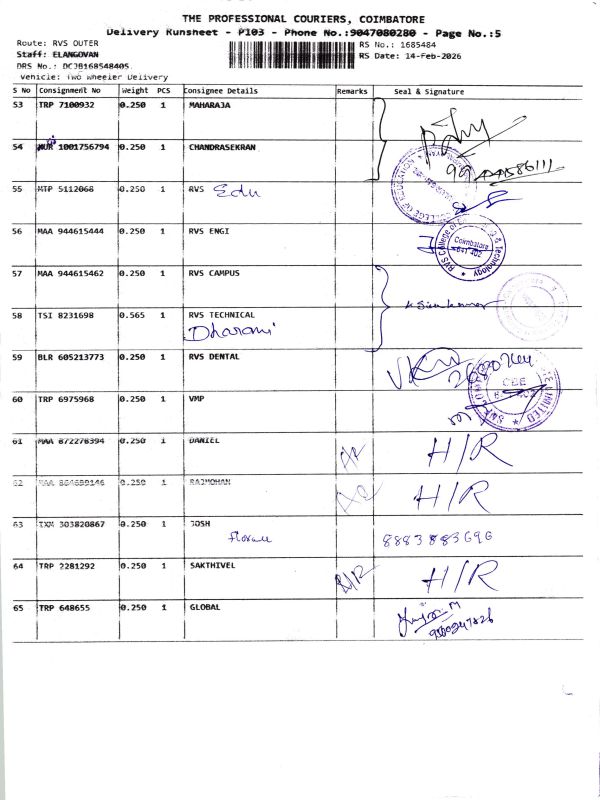 THE PROFESSIONAL COURIERS, COIMBATORE
Delivery Runsheet - P103 - Phone No.:9047080280 - Page No.:5
Route: RVS OUTER
RS No.: 1685484
Staff: ELANGOVAN
RS Date: 14-Feb-2026
DRS No.: DCJB168548405
Vehicle: Two Wheeler Delivery
S No Consignment No Weight PCS Consignee Details Remarks Seal & Signature
53 TRP 7100932 0.250 1 MAHARAJA
54 1001756794 0.250 1 CHANDRASEKRAN
55 MTP 5112068 0.250 1 RVS Edu
56 MAA 944615444 0.250 1 RVS ENGI
RVS College of & Technology Coimbatore 641 402
57 MAA 944615462 0.250 1 RVS CAMPUS
58 TSI 8231698 0.565 1 RVS TECHNICAL
Dharani
59 BLR 605213773 0.250 1 RVS DENTAL
60 TRP 6975968 0.250 1 VMP
61 MAA 872278394 0.250 1 DANIEL H/R
62 MAA 864699146 0.250 1 RAJMOHAN H/R
63 IXM 303820867 0.250 1 JOSH
8883883696
64 TRP 2281292 0.250 1 SAKTHIVEL H/R
65 TRP 648655 0.250 1 GLOBAL